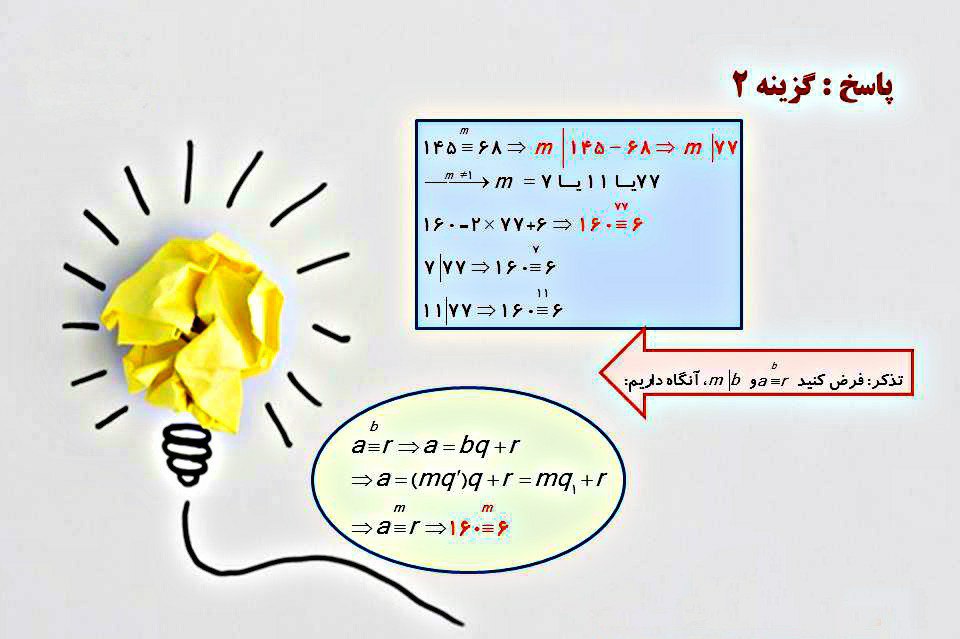 پاسخ : گزینه ۲
۱۴۵ ≡ ۶۸ (m) ⇒ m | ۱۴۵ − ۶۸ ⇒ m | ۷۷
m ≠ ۱ ⟶ m = ۷ یا ۱۱ یا ۷۷
۱۶۰ = ۲ × ۷۷ + ۶ ⇒ ۱۶۰ ≡ ۶ (۷۷)
۷ | ۷۷ ⇒ ۱۶۰ ≡ ۶ (۷)
۱۱ | ۷۷ ⇒ ۱۶۰ ≡ ۶ (۱۱)
تذکر: فرض کنید a ≡ r (b) و m | b، آنگاه داریم:
a ≡ r (b) ⇒ a = bq + r
⇒ a = (mq′)q + r = mq₁ + r
⇒ a ≡ r (m) ⇒ ۱۶۰ ≡ ۶ (m)